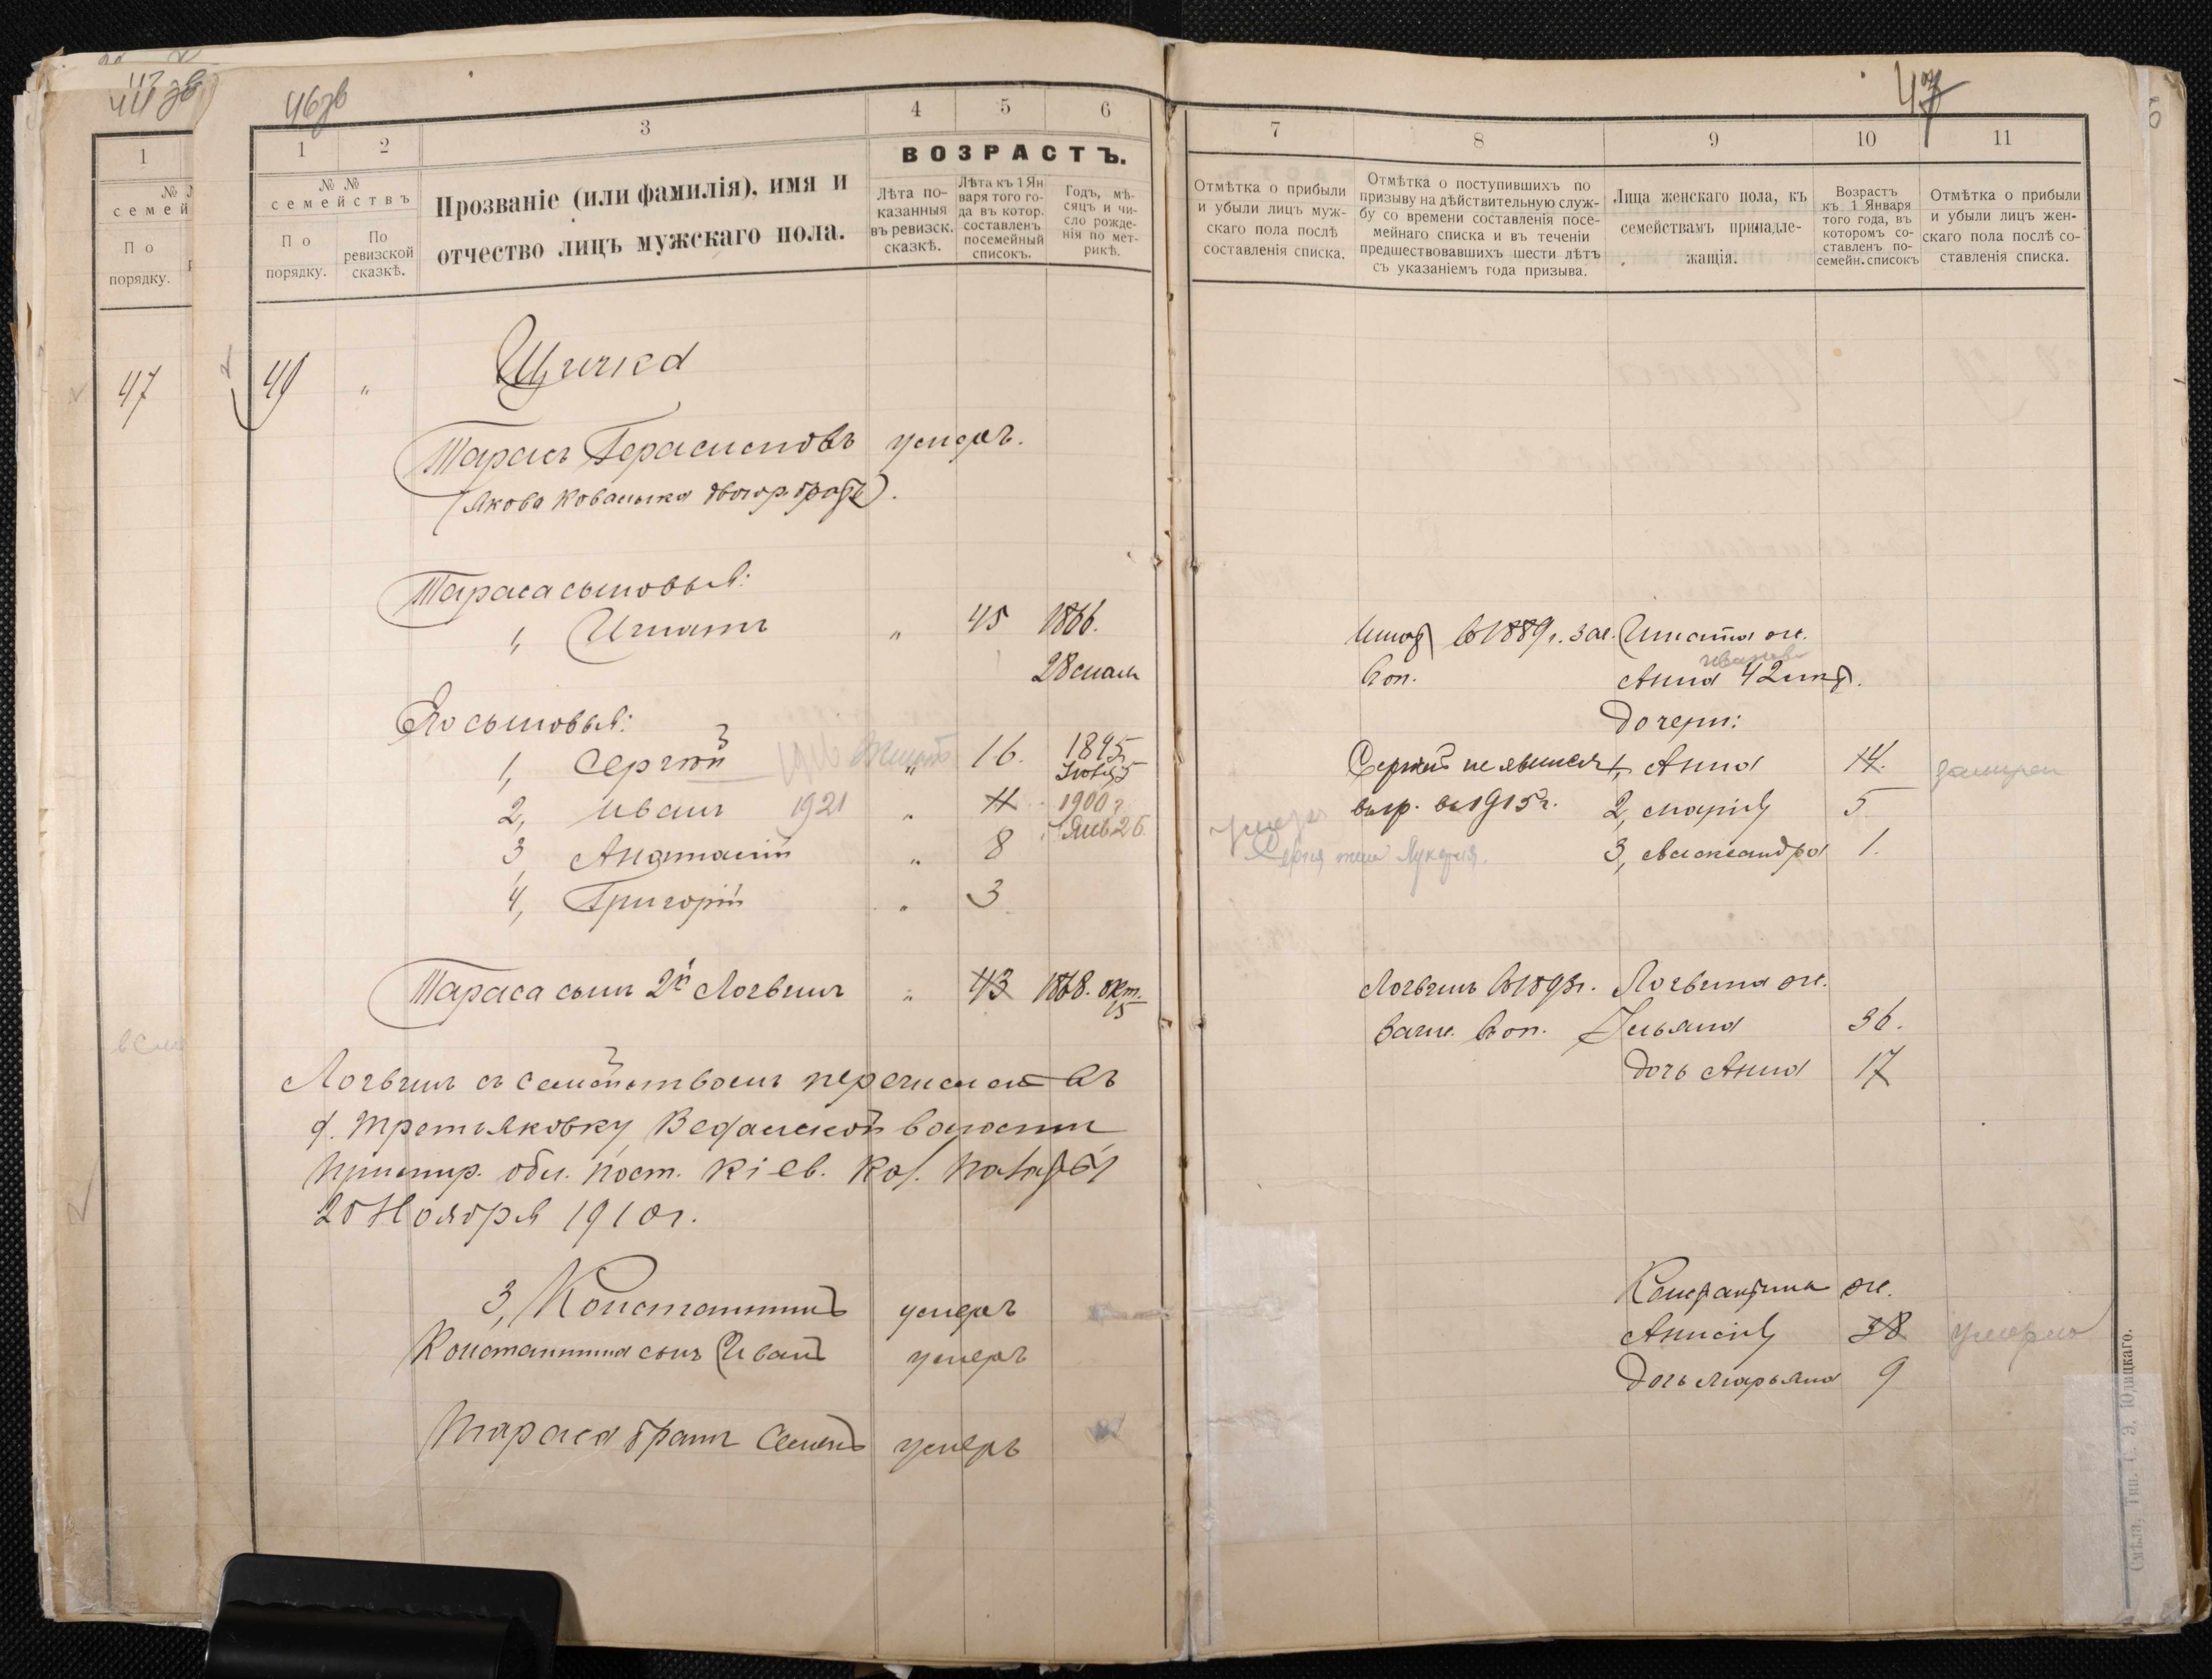 44 зв
46 зв
1
№ №
семей
По
порядку.
47
1
2
3
4
5
6
№ №
семействъ
По
порядку.
По
ревизской
сказкѣ.
Прозваніе (или фамилія), имя и
отчество лицъ мужскаго пола.
ВОЗРАСТЪ.
Лѣта по-
казанныя
въ ревизск.
сказкѣ.
Лѣта къ 1 Ян
варя того го-
да въ котор.
составленъ
посемейный
списокъ.
Годъ, мѣ-
сяцъ и чи-
сло рожде-
нія по мет-
рикѣ.
49 "
Щичка
Тарасъ Герасимовъ умеръ.
(Якова Ковалыка двоюр. братъ).
Тараса сыновья:
1, Игнатъ " 45 1866.
28 мая
Его сыновья:
1, Сергѣй " 16. 1895
5
2, Иванъ 1921 " 11 1900 г.
Янв 26
3, Анатолій " 8
4, Григорій " 3
Тараса сынъ 2й Логвинъ " 43 1868. окт.
15
Логвинъ съ семействомъ перечисленъ въ
д. Третьяковку волости
Примор. обл. пост. Кіев. Каз. Палаты
20 Ноября 1910 г.
3, Константинъ умеръ
Константина сынъ Иванъ умеръ
Тараса братъ Семенъ умеръ
47
7
8
9
10
11
Отмѣтка о прибыли
и убыли лицъ муж-
скаго пола послѣ
составленія списка.
Отмѣтка о поступившихъ по
призыву на дѣйствительную служ-
бу со времени составленія посе-
мейнаго списка и въ теченіи
предшествовавшихъ шести лѣтъ
съ указаніемъ года призыва.
Лица женскаго пола, къ
семействамъ принадле-
жащія.
Возрастъ
къ 1 Января
того года, въ
которомъ со-
ставленъ по-
семейн. списокъ
Отмѣтка о прибыли
и убыли лицъ жен-
скаго пола послѣ со-
ставленія списка.
Игнат въ 1889 г. зач. Игната ж.
в оп. Анна 42 лѣтъ.
Дочери:
Сергѣй не явился 1, Анна 14. замужем
въ 1915 г. 2, Марія 5
умеръ
Сергія жена Лукерія. 3, Александра 1.
Логвинъ въ 189 г. Логвина ж.
зачис. въ оп. Ульяна 36.
дочь Анна 17
Константина ж.
Анисія 38 умерла
дочь Марьяна 9
Смѣла, Тип. С. Э. Юдицкаго.